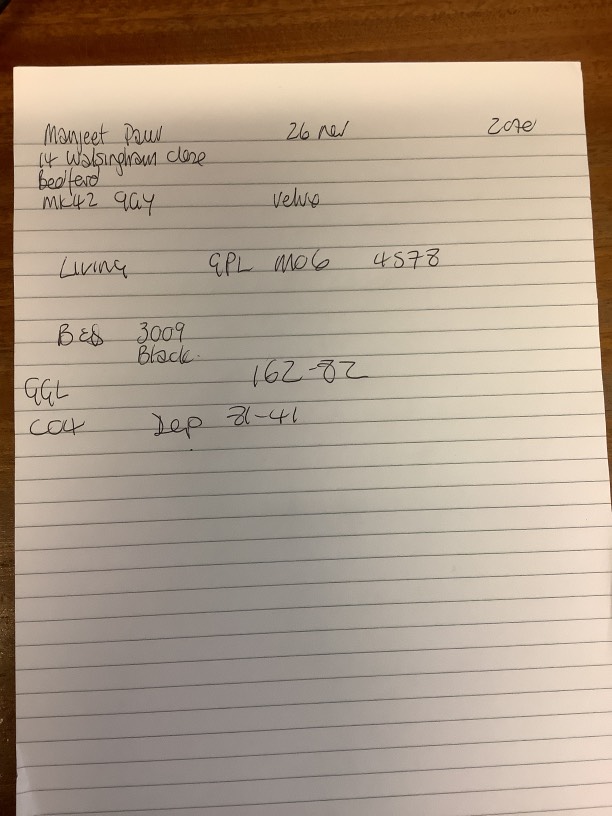 Manjeet Paul 26 nov
14 Walsingham close
Bedford
MK42 9ay velux
Living GPL M06 4578
3009
Black.
162-82
GGL
C04 Dep 81-41